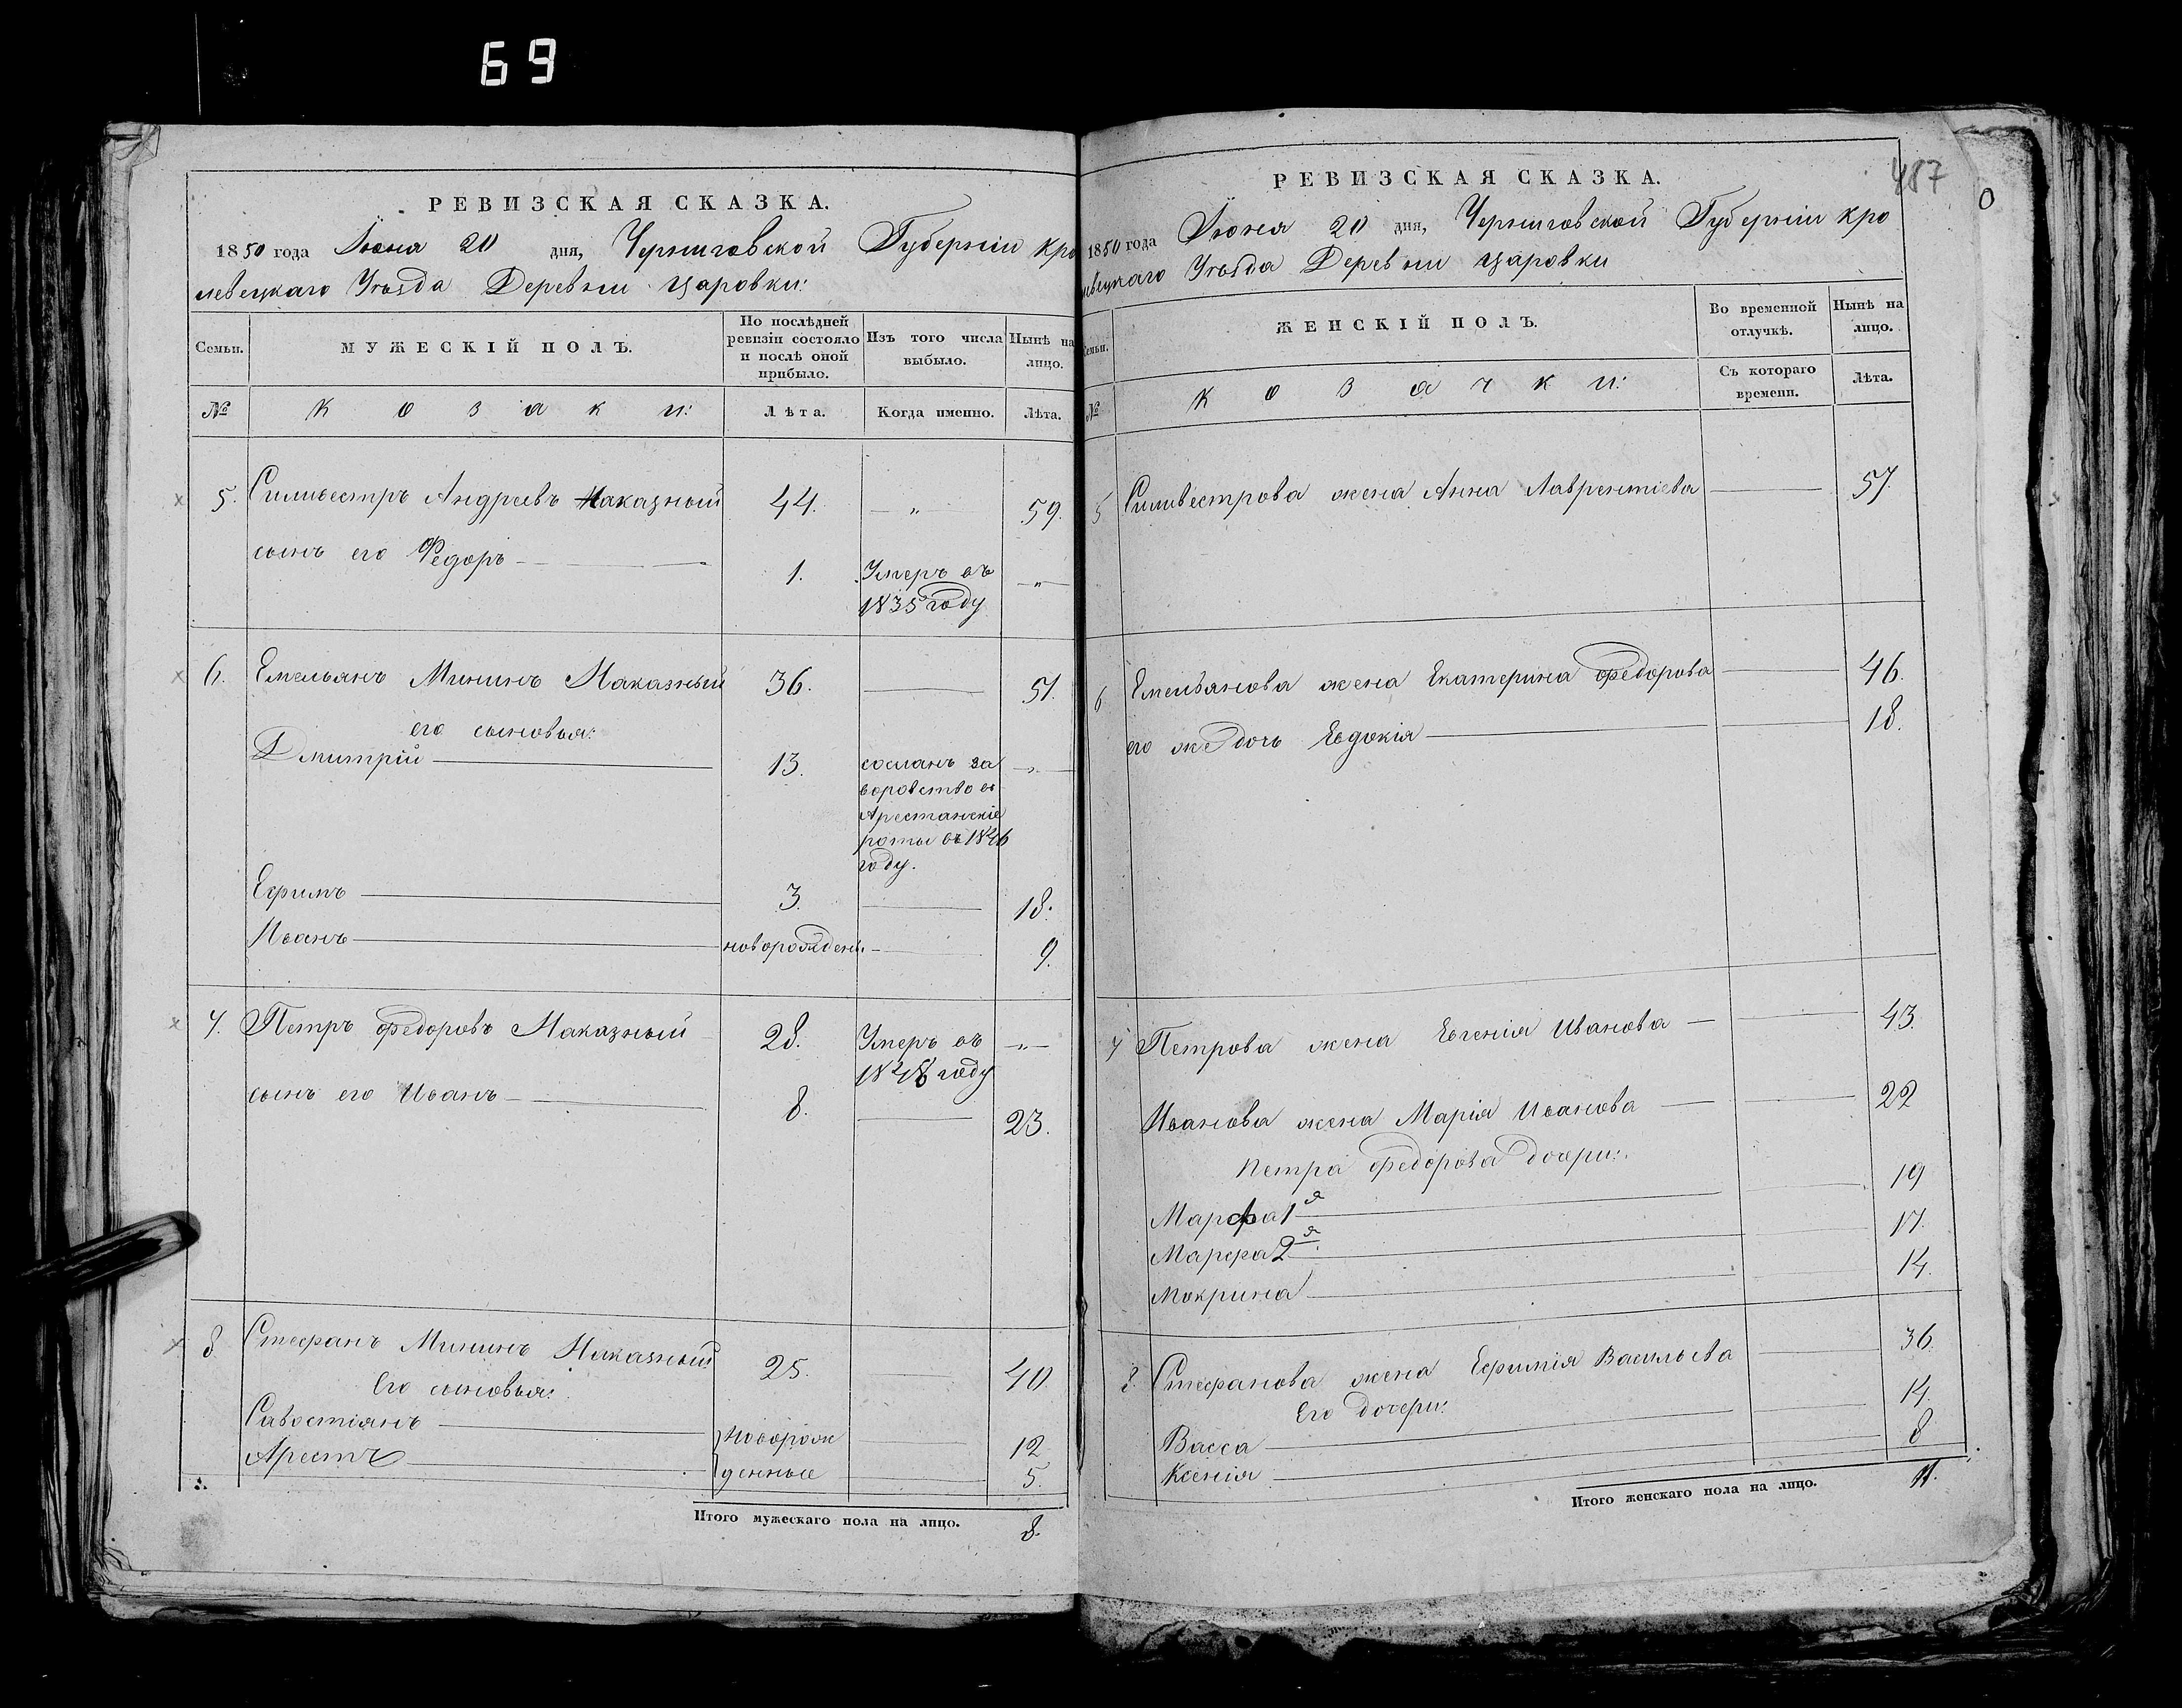 69
РЕВИЗСКАЯ СКАЗКА.
1850 года Июня 20 дня, Черниговской Губерніи Кро
левецкаго Уѣзда Деревни Царовки:
Семьи.
МУЖЕСКІЙ ПОЛЪ.
По послѣдней ревизіи состояло и послѣ оной прибыло.
Изъ того числа выбыло.
Нынѣ на лицо.
№
Козаки:
Лѣта.
Когда именно.
Лѣта.
5. Силивестръ Андреевъ Наказный 44. — „ — 59.
сынъ его Федоръ — 1. Умеръ въ — „ —
1835 году
6. Емельянъ Мининъ Наказный 36. — 51.
его сыновья:
Дмитрій — 13. сосланъ за — „ —
воровство въ
Арестанскіе
роты въ 1846
году.
Ефимъ — 3. — 18.
Иванъ — новорожденъ. — 9.
7. Петръ Федоровъ Наказный 28. Умеръ въ — „ —
1848 году
сынъ его Иванъ — 8. — 23.
8 Стефанъ Мининъ Наказный 25. — 40
Его сыновья:
Савостіянъ — новорож — 12
Арестъ — денные — 5.
Итого мужескаго пола на лицо. 8.
487
0
РЕВИЗСКАЯ СКАЗКА.
1850 года Июня 20 дня, Черниговской Губерніи Кро
левецкаго Уѣзда Деревни Царовки
Семьи.
ЖЕНСКІЙ ПОЛЪ.
Во временной отлучкѣ.
Нынѣ на лицо.
№
Козачки:
Съ котораго времени.
Лѣта.
5 Силивестрова жена Анна Лаврентіева — 57.
6 Емельянова жена Екатерина Федорова — 46.
его же дочь Евдокія — 18.
7 Петрова жена Евгенія Иванова — 43.
Иванова жена Марія Иванова — 22
Петра Федорова дочери:
Марфа 1я — 19
Марфа 2я — 17.
Мокрина — 14.
8. Стефанова жена Ефимія Васильева — 36.
Его дочери:
Васса — 14.
Ксенія — 8
Итого женскаго пола на лицо. 11.